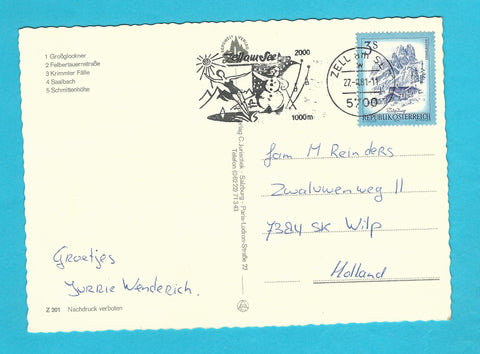 1 Großglockner
2 Felbertauernstraße
3 Krimmler Fälle
4 Saalbach
5 Schmittenhöhe
Zell am See
2000
1000m
ZELL AM SEE
27.-8.81-11
5700
3S
REPUBLIK ÖSTERREICH
Verlag C. Jurischek - Salzburg - Paris-Lodron-Straße 22
Fam M Reinders
Zwaluwenweg 11
7384 SK Wilp
Holland
Groetjes
Jurrie Wenderich.
Z 201 Nachdruck verboten